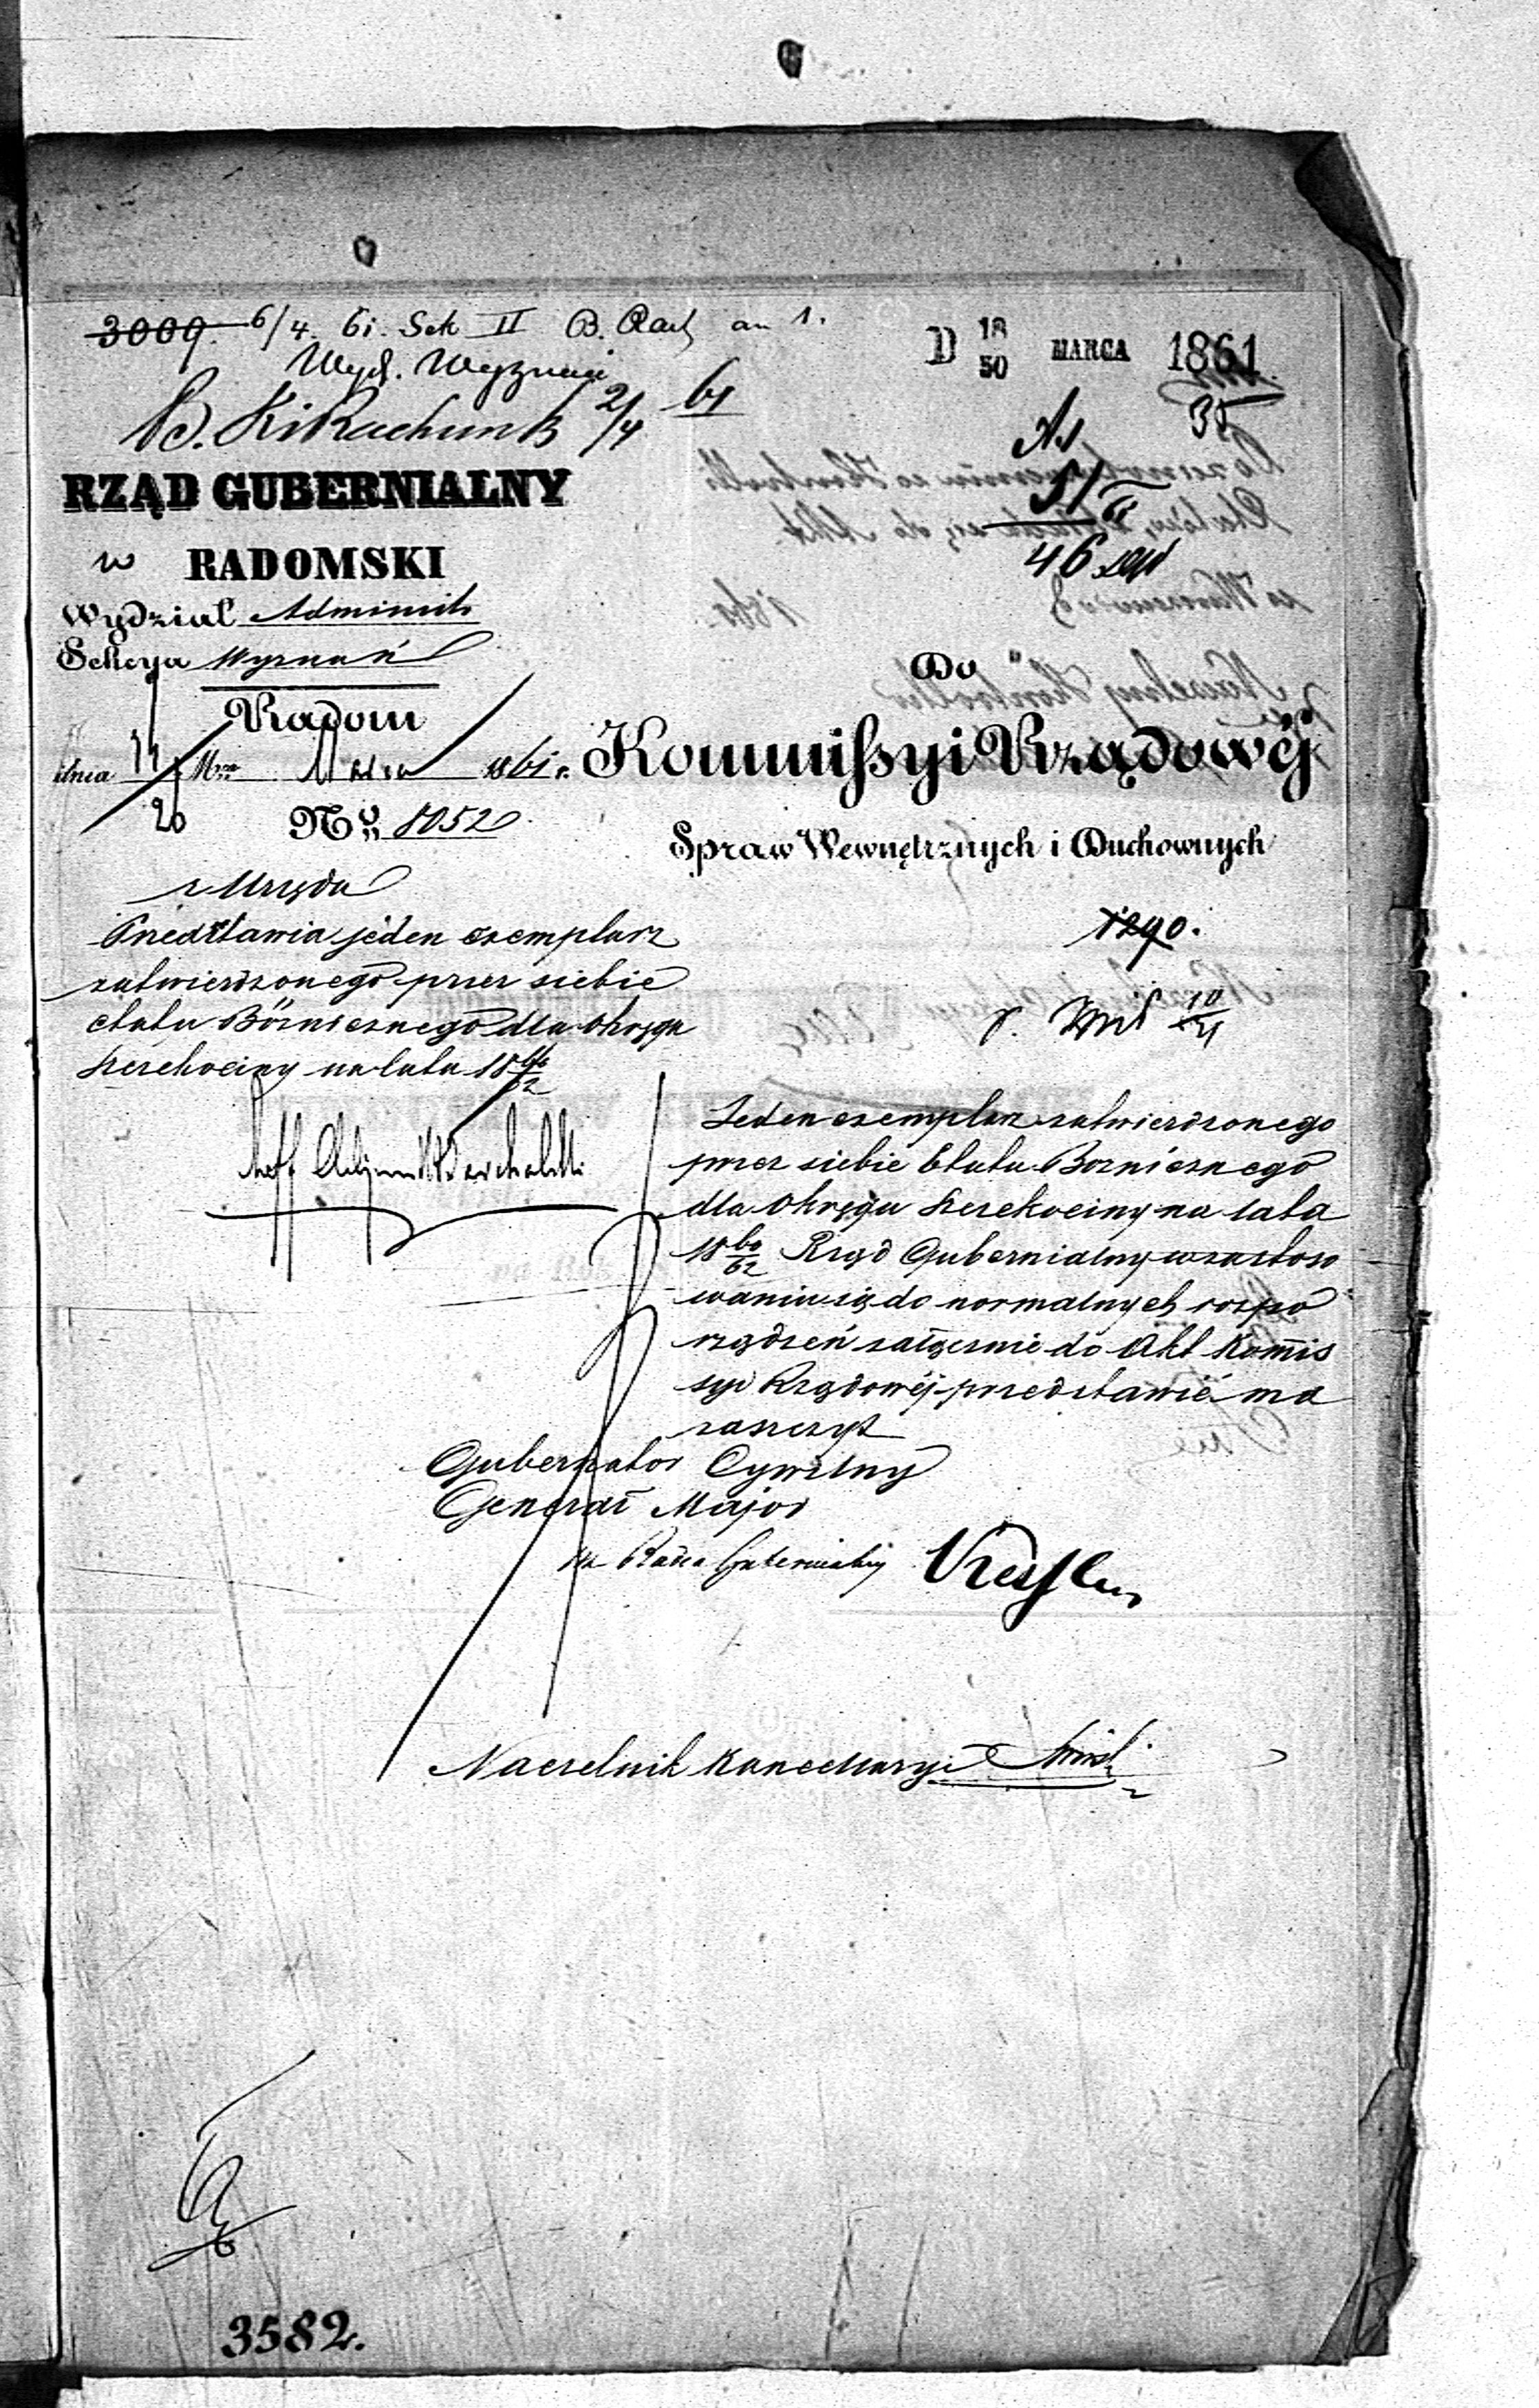 3009. 6/4 61. Sek II B. Rach an 1.
Wydz. Wyznań
D 18/30 MARCA 1861
B. Ki Rachunk 2/4 61
35
RZĄD GUBERNIALNY
w RADOMSKI
46
Wydział Administr
Sekcya Wyznań
Do
Radom
dnia 14/26 Mca Marca 1861 r.
Kommissyi Rządowéj
No 8052
Spraw Wewnętrznych i Duchownych
z Urzędu
Przedstawia jeden exemplarz
zatwierdzonego przez siebie
etatu Bóżnicznego dla Okręgu
Szczekociny na lata 18 60/62
1290.
10/4
Jeden exemplarz zatwierdzonego
przez siebie Etatu Boznicznego
dla Okręgu Szczekociny na lata
18 60/62 Rząd Gubernialny w zastoso
waniu się do normalnych rozpo
rządzeń załącznie do Akt Kommis
syi Rządowéj przedstawić ma
zaszczyt
Gubernator Cywilny
Generał Major
Radca Gubernialny
Naczelnik Kancellaryi
3582.